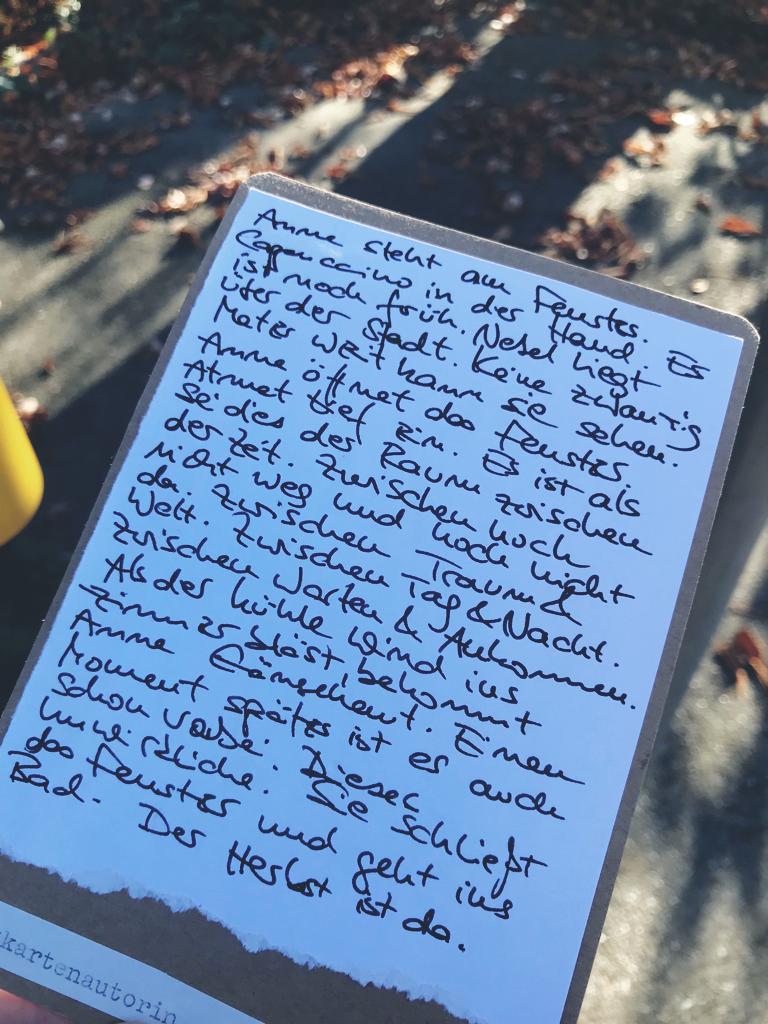 Anne steht am Fenster.
Cappuccino in der Hand. Es
ist noch früh. Nebel liegt
über der Stadt. Keine zwanzig
Meter weit kann sie sehen.
Anne öffnet das Fenster.
Atmet tief ein. Es ist als
sei dies der Raum zwischen
der Zeit. Zwischen noch
nicht weg und noch nicht
da. Zwischen Traum &
Welt. Zwischen Tag & Nacht.
Zwischen Warten & Ankommen.
Als der kühle Wind ins
Zimmer bläst, bekommt
Anne Gänsehaut. Einen
Moment später ist es auch
schon vorbei. Dieses
unwirkliche. Sie schließt
das Fenster und geht ins
Bad. Der Herbst ist da.
kartenautorin